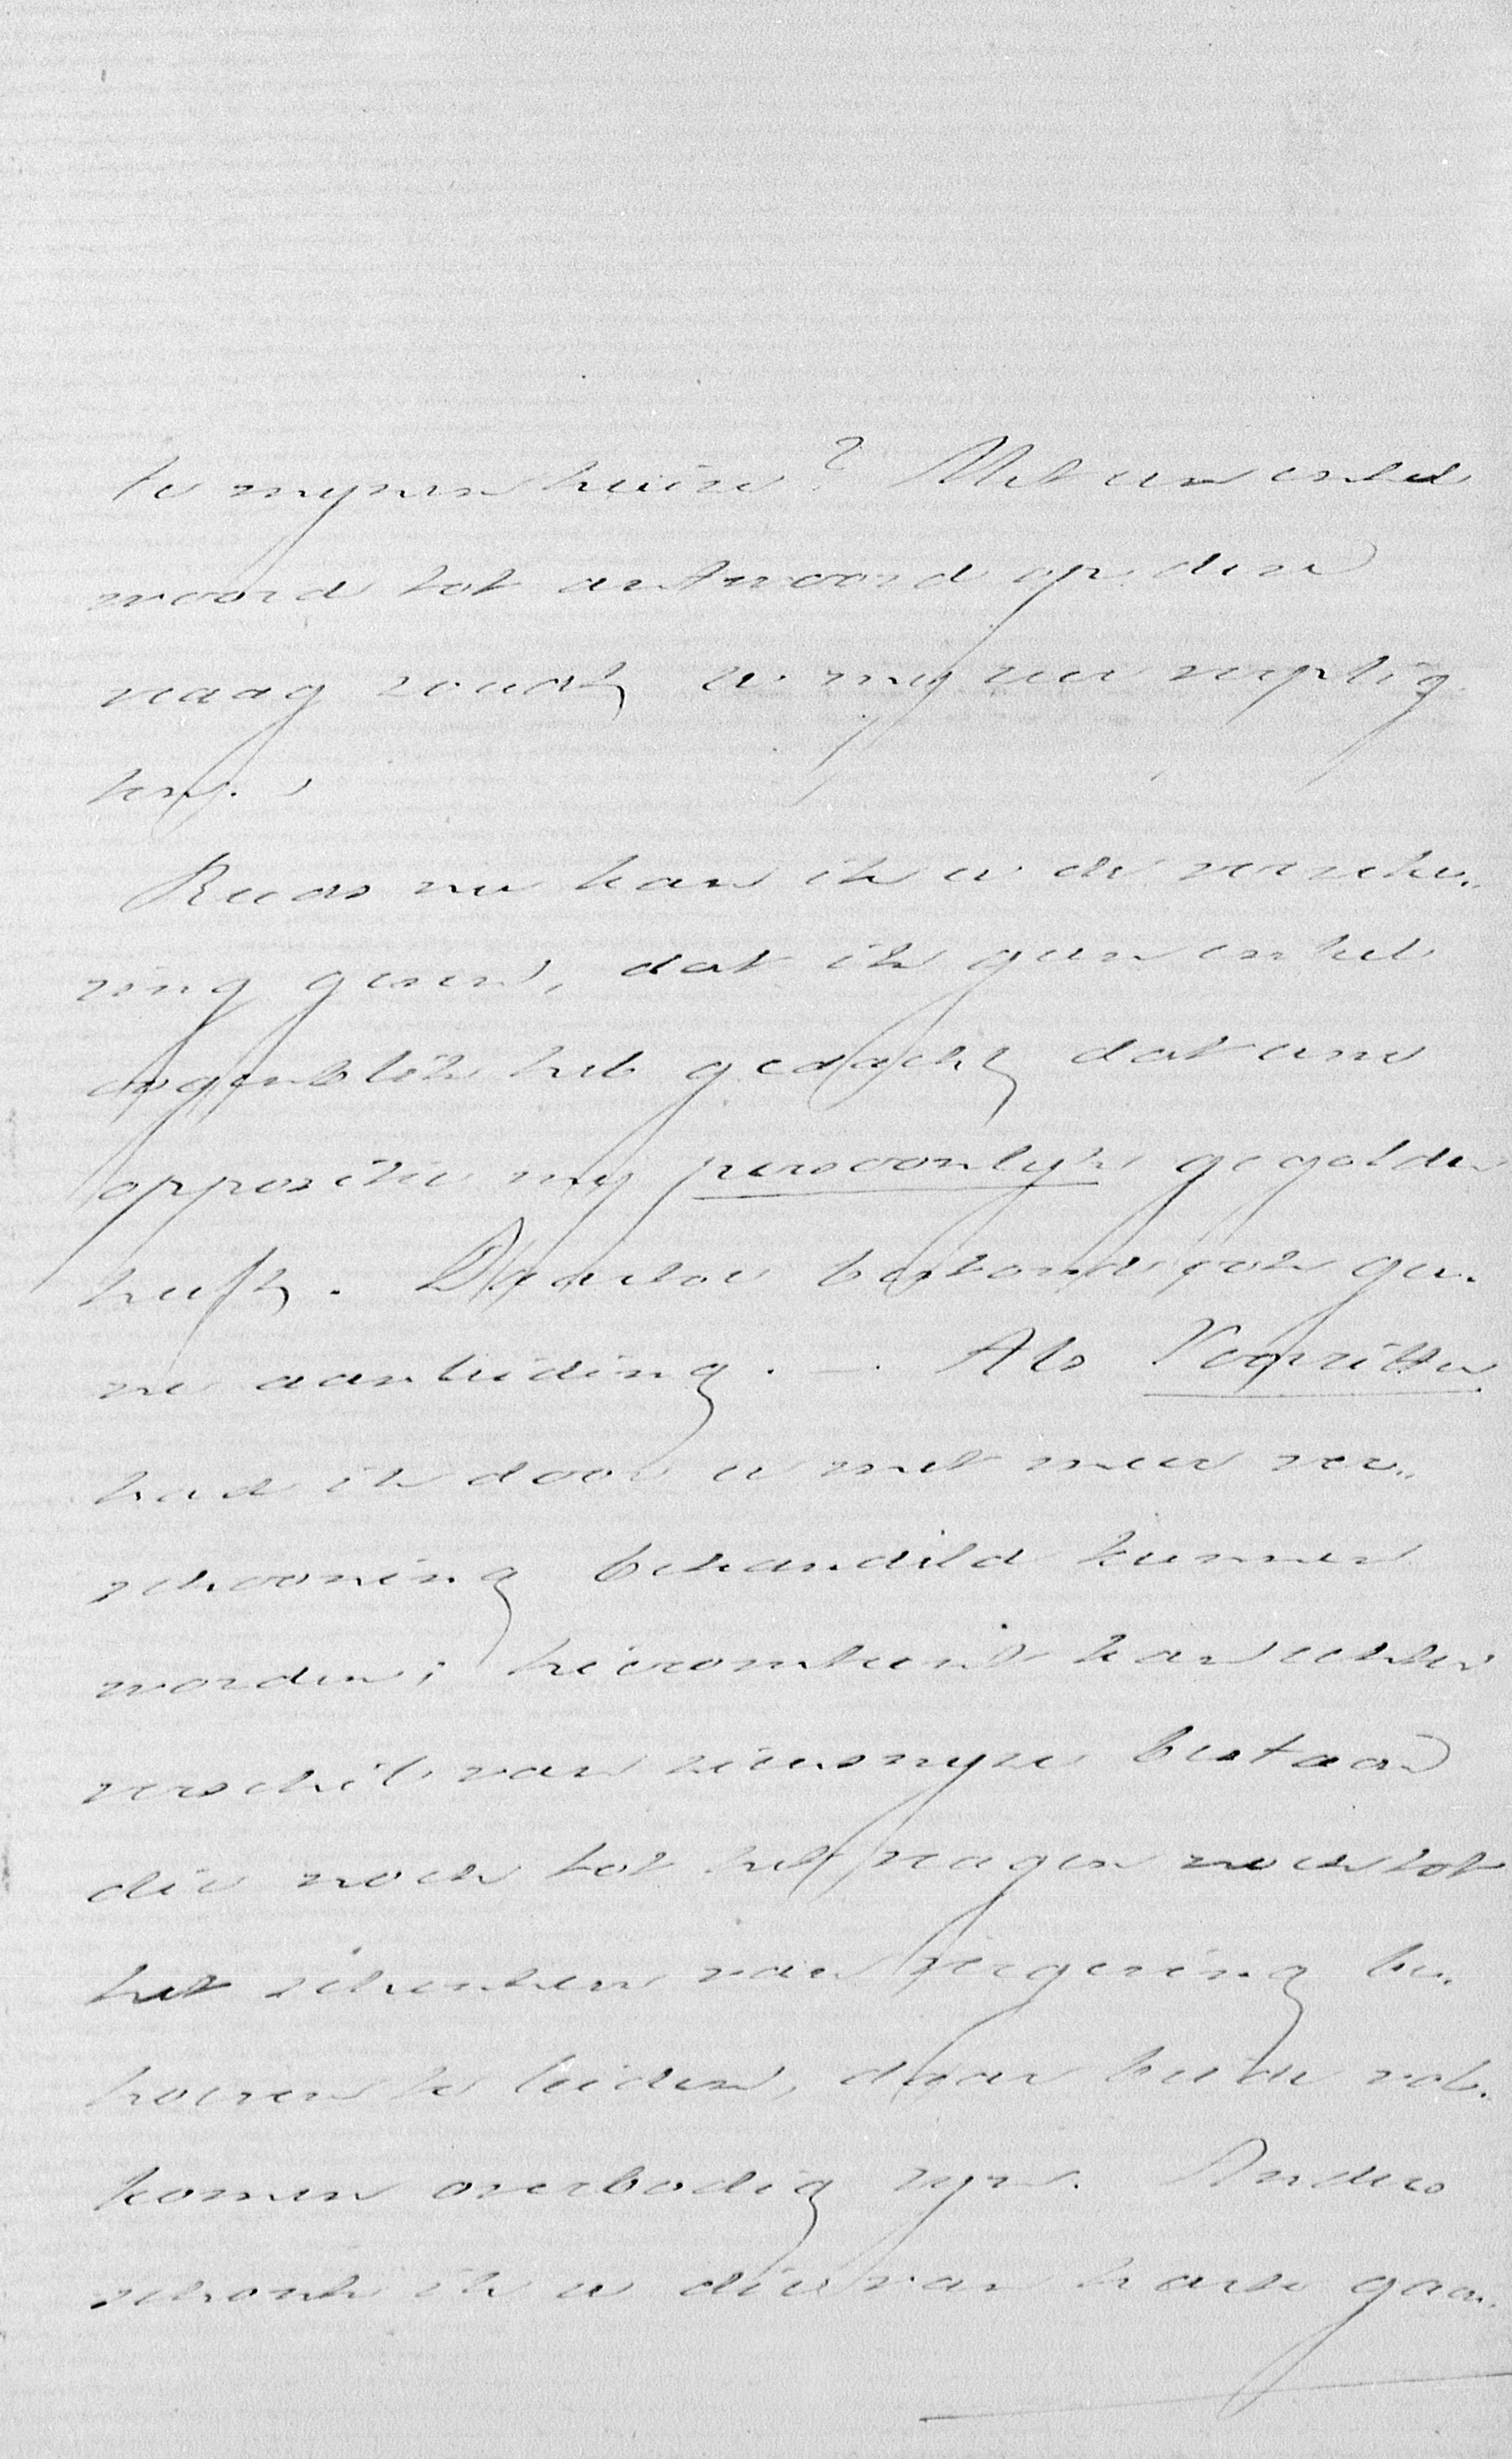 te mynen huize? Met een enkel
woord tot antwoord op deze
vraag zoudt u my zeer verplig-
ten.
Reeds nu kan ik u de verzeke-
ring geven, dat ik geen enkel
oogenblik heb gedacht, dat uwe
oppositie my persoonlyk gegolden
heeft. Daartoe bestond ook gee-
ne aanleiding. — Als Voorzitter
had ik door u met meer ver-
schooning behandeld kunnen
worden; hieromtrent kan echter
verschil van zienswyze bestaan
die noch tot het vragen noch tot
het schenken van vergeving be-
hoeven te leiden, daar beide vol-
komen overbodig zyn. Anders
schonk ik u die van harte gaar-